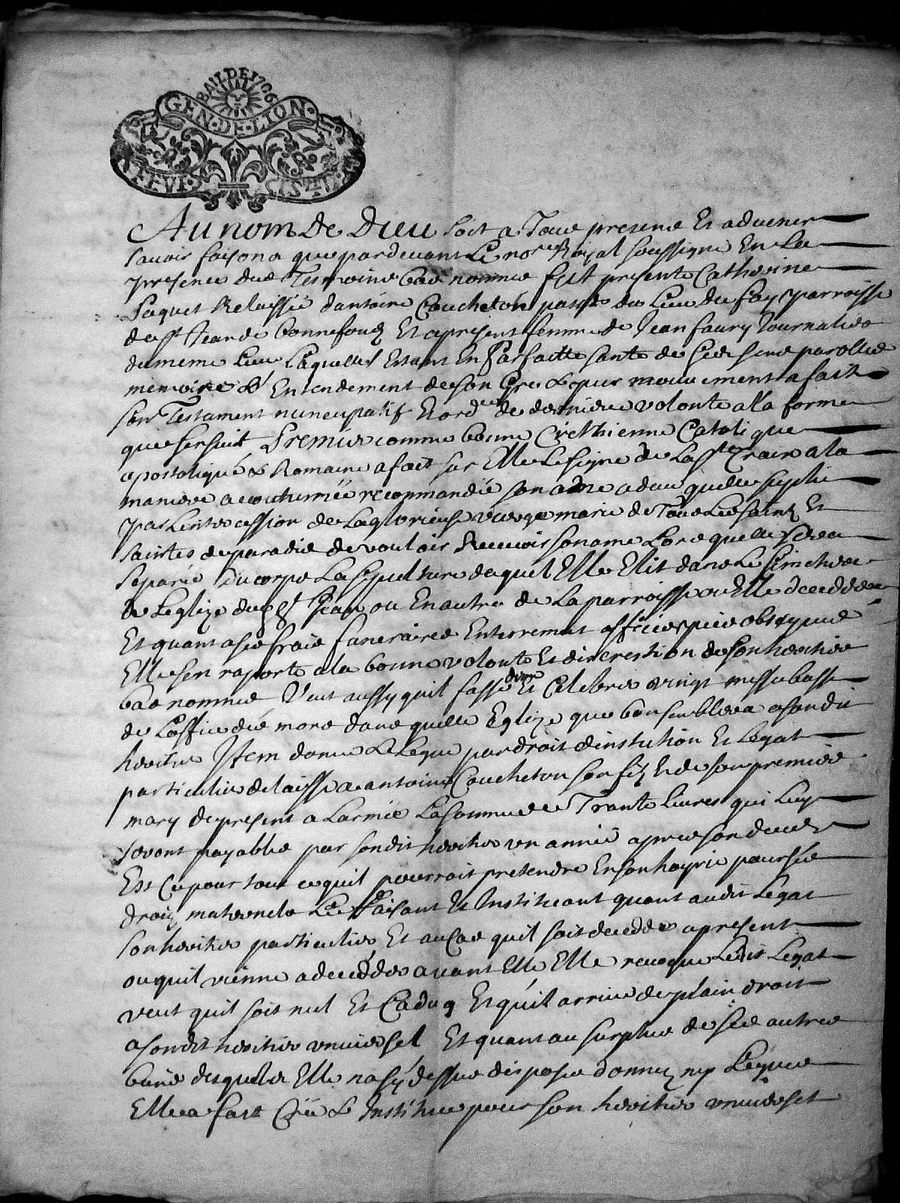 BAIL DE 1706
GEN · DE · LION
Au nom De Dieu soit a Tous presens Et advenir
savoir faisons que pardevant Le nore Royal soussigne En La
presence des Tesmoins bas nommes fut presente Catherine
paquet Relaissée dantoine Coucheton du Lieu du fay parroisse
de st Jean de bonnefond Et apresent femme de Jean faury Journalier
du meme Lieu Laquelles Estant En parfaitte sante de ses sens parolles
memoire & Entendement de son Gre & pur mouvement a fait
son Testament nuncupatif Et ordce de derniere volonte a la forme
que sensuit Premier comme bonne Crethienne Catolique
apostolique & Romaine a fait sur Elle Le signe de La ste Croix a la
maniere acoutumée recommandée son ame a dieu quelle suplie
par Lintercession de La glorieuse vierge marie de Tous Les saints Et
saintes de paradis de vouloir Recevoir son ame Lors quelle sera
separée du corps La sepulture duquel Elle Elit dans Le simetiere
de Leglize dud st Jean ou En autre de La parroisse ou Elle decedera
Et quant a ses frais funeraires Enterrement offices obseques
Elle sen raporte a la bonne volonte Et discression de son heritier
bas nommé Veut aussy quil fasse dire Et Celebrer vingt messe basse
de Loffice des mors dans quelle Eglize que bon semblera a sondit
heritier Item donne & Legue par droit dinstitution Et Legat
particulier delaisse a antoine Coucheton son filz & de son premier
mary de present a Larmée La somme de Trante Livres qui Luy
seront payable par sondit heritier un année apres son deces
Est Ce pour tout ce quil pourroit pretendre En son hoyrie pour ses
droitz maternels Le faisant & Instituant quant audit Legat
son heritier particulier Et au Cas quil soit decedde apresent
ou quil vienne a deceder avant Elle Elle revoque Ledit Legat
veut quil soit nul Et Caduq Et quil arrive de plain droit
a sondit heritier universel Et quant au surplus de ses autres
biens desquels Elle na sy dessus disposée donnez ny Legues
Elle a fait Crée & Institue pour son heritier universel